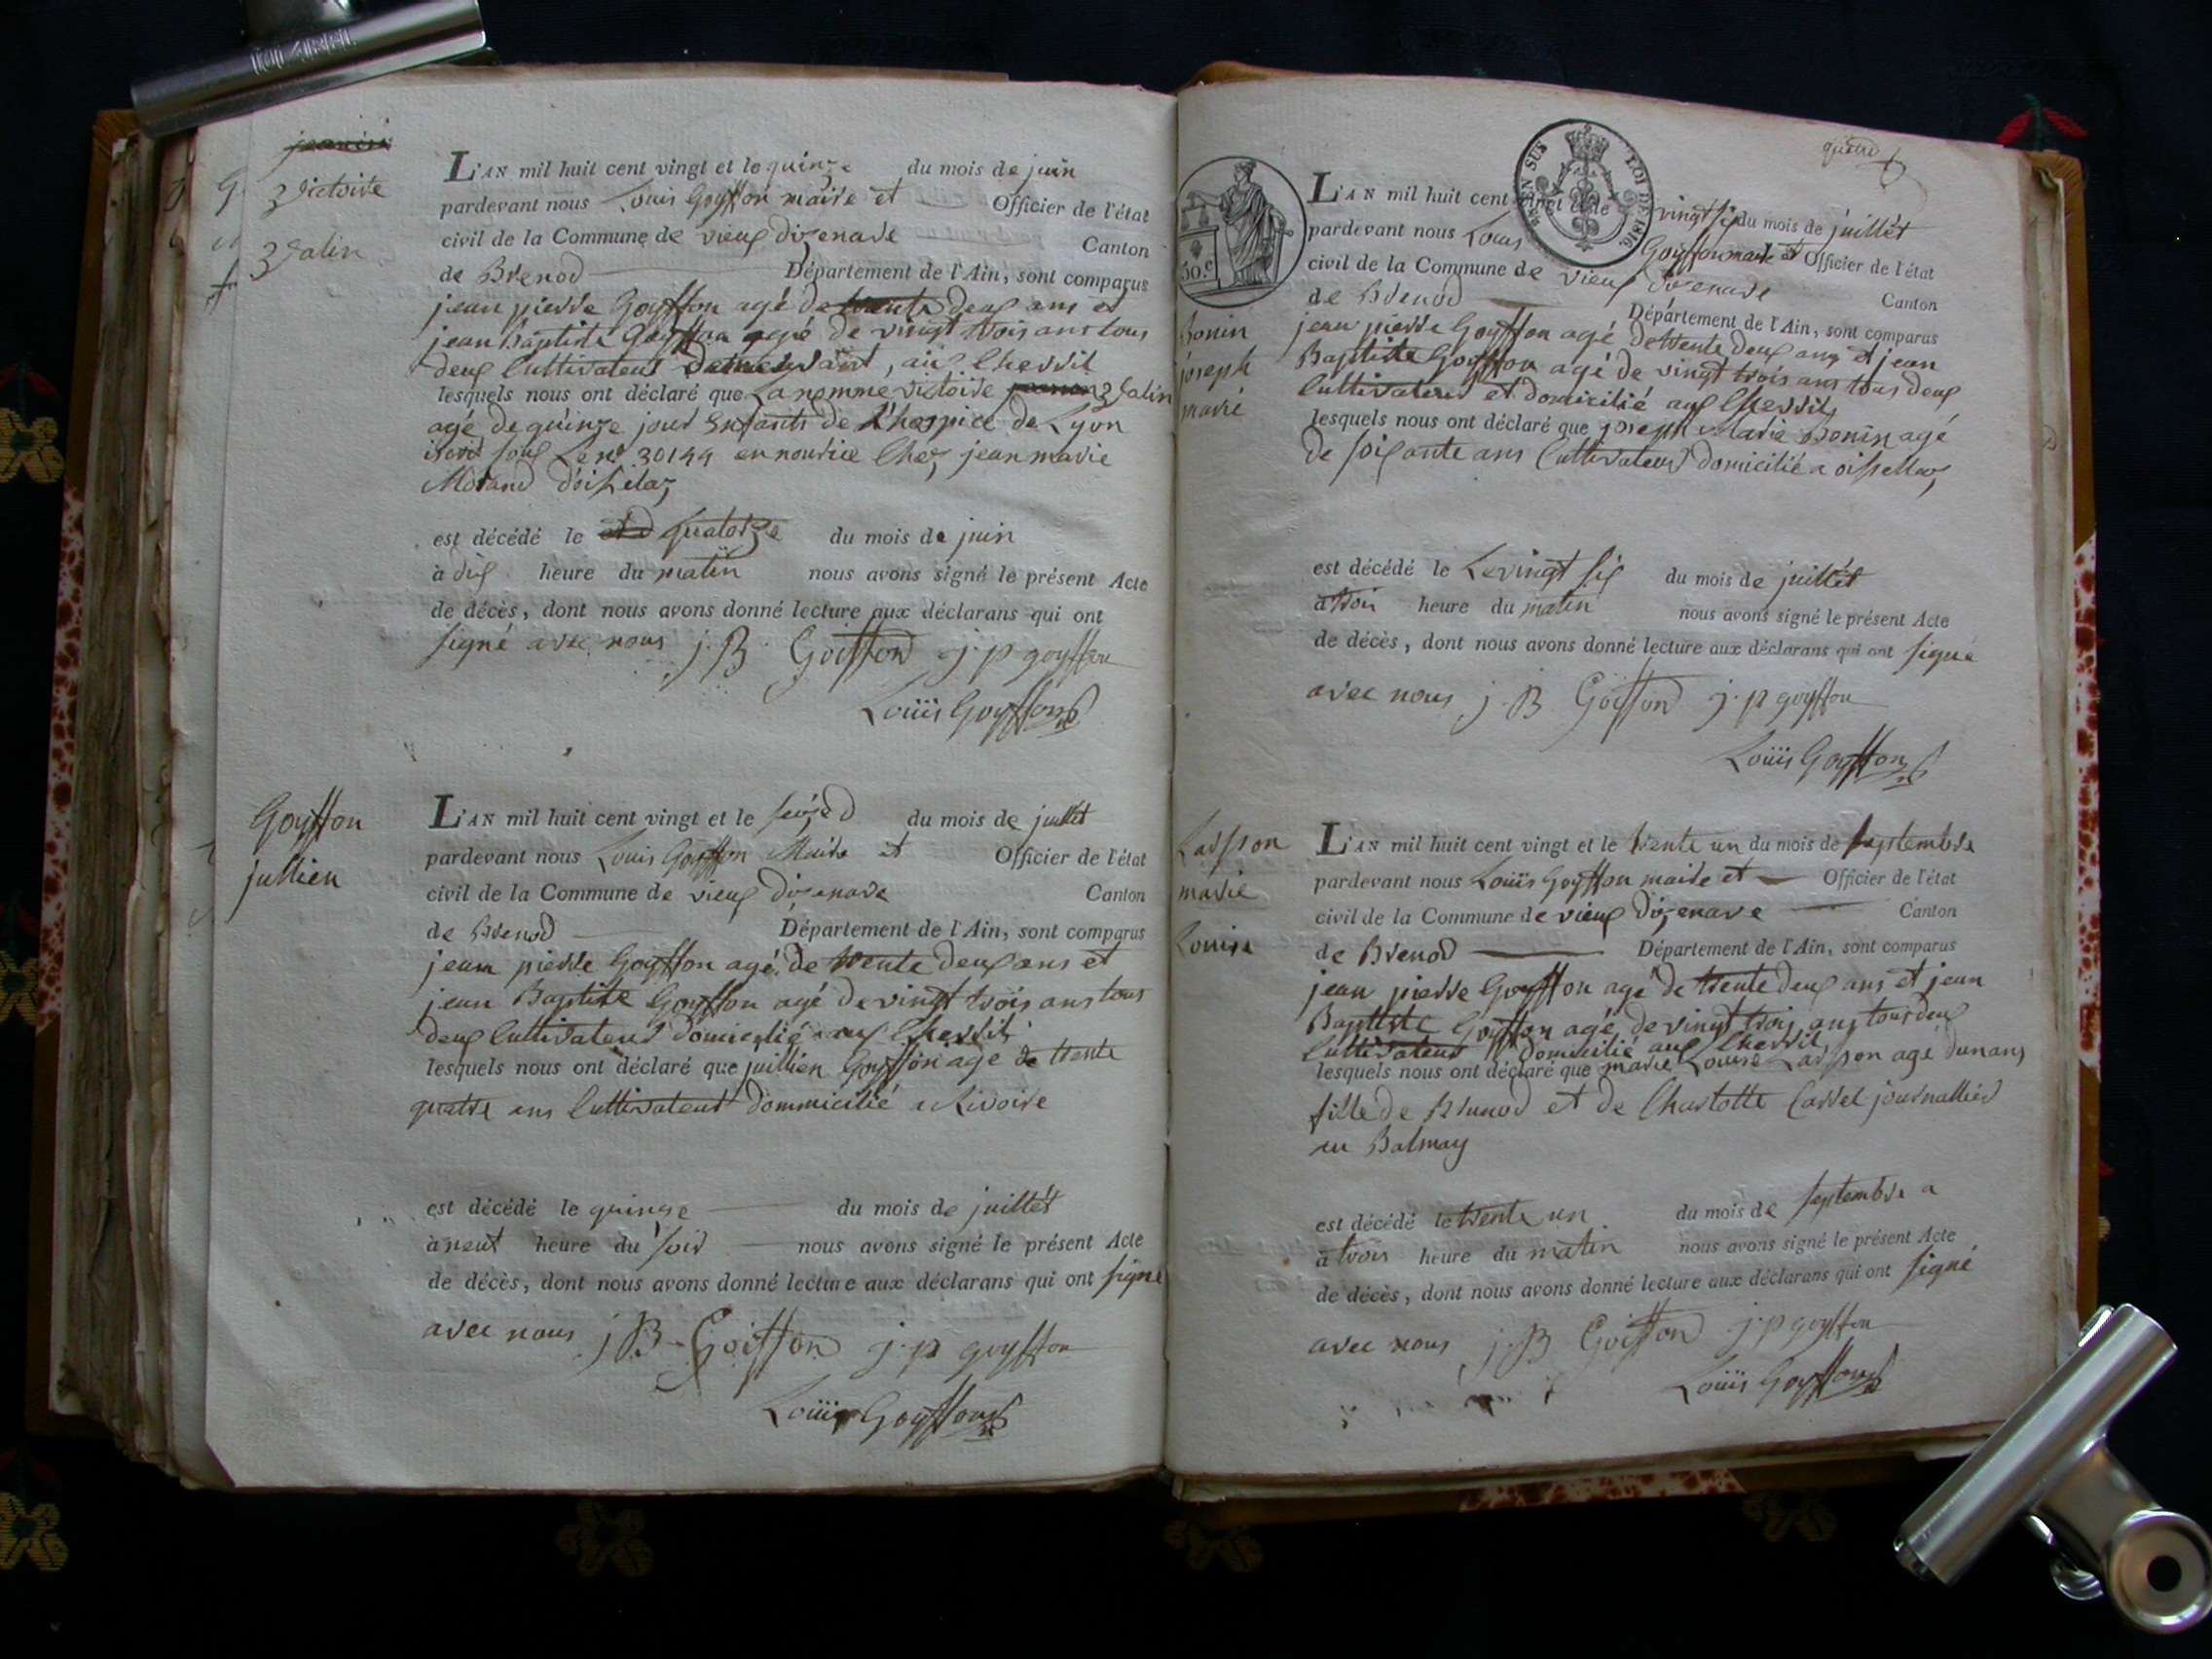 Victoire
Zalin
L'AN mil huit cent vingt et le quinze du mois de juin
pardevant nous Louis Goyffon maire et Officier de l'état
civil de la Commune de vieux dizenave Canton
de Brenod Département de l'Ain, sont comparus
jean pierre Goyffon agé de trente deux ans et
jean Baptiste Goyffon agé de vingt trois ans tous
deux Cultivateur demeurant, aux
lesquels nous ont déclaré que La nomme victoire Zalin
agé de quinze jour Enfants de L'hospice de Lyon
sous Le no 30144 en nourice Chez jean marie
Morand
est décédé le quatorze du mois de juin
à dix heure du matin nous avons signé le présent Acte
de décès, dont nous avons donné lecture aux déclarans qui ont
signé avec nous j. B. Goiffon j. p goyffon
Louis Goyffon
Goyffon
jullien
L'AN mil huit cent vingt et le du mois de juillet
pardevant nous Louis Goyffon Maire et Officier de l'état
civil de la Commune de vieux dizenave Canton
de Brenod Département de l'Ain, sont comparus
jean pierre Goyffon agé de trente deux ans et
jean Baptiste Goyffon agé de vingt trois ans tous
deux Cultivateur domicilié aux
lesquels nous ont déclaré que juillien Goyffon age de trente
quatre ans Cultivateur dommicilié a Rivoire
est décédé le quinze du mois de juillét
à neuf heure du soir nous avons signé le présent Acte
de décès, dont nous avons donné lecture aux déclarans qui ont signé
avec nous j B Goiffon j. p goyffon
Louis Goyffon
EN SUS LOI DE 1816.
50.c
Bonin
joseph
marie
L'AN mil huit cent vingt et le vingt six du mois de juillét
pardevant nous Louis Goyffon maire et Officier de l'état
civil de la Commune de vieux dizenave Canton
de Brenod Département de l'Ain, sont comparus
jean pierre Goyffon agé de trente deux ans et jean
Baptiste Goyffon agé de vingt trois ans tous deux
Cultivateur et domicilié aux
lesquels nous ont déclaré que joseph Marie Bonin agé
de soixante ans Cultivateur domicilié a
est décédé le Le vingt six du mois de juillét
à trois heure du matin nous avons signé le présent Acte
de décès, dont nous avons donné lecture aux déclarans qui ont signé
avec nous j. B Goiffon j. p goyffon
Louis Goyffon
marie
Louise
L'AN mil huit cent vingt et le trente un du mois de septembre
pardevant nous Louis Goyffon maire et Officier de l'état
civil de la Commune de vieux dizenave Canton
de Brenod Département de l'Ain, sont comparus
jean pierre Goyffon agé de trente deux ans et jean
Baptiste Goyffon agé de vingt trois ans tous deux
Cultivateur domicilié aux
lesquels nous ont déclaré que marie Louise agé dun ans
fille de et de Charlotte journallier
au Balmay
est décédé le trente un du mois de septembre a
à trois heure du matin nous avons signé le présent Acte
de décès, dont nous avons donné lecture aux déclarans qui ont signé
avec nous j. B Goiffon j. p goyffon
Louis Goyffon